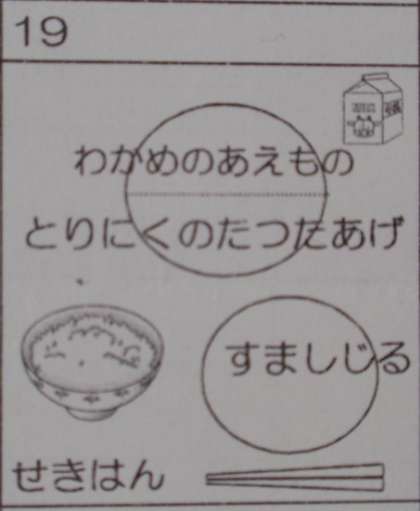 19
わかめのあえもの
とりにくのたつたあげ
すましじる
せきはん